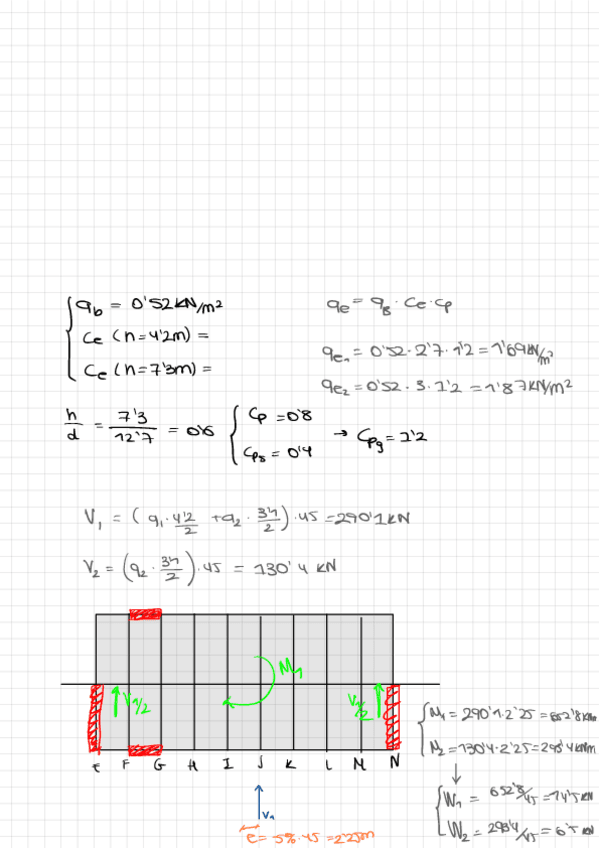 q_b = 0'52 kN/m²
Ce (n=4'2m) =
Ce (n=7'3m) =
q_e = q_b · Ce · Cp
q_e1 = 0'52 · 2'7 · 1'2 = 1'69 kN/m²
q_e2 = 0'52 · 3 · 1'2 = 1'87 kN/m²
h/d = 7'3/12'7 = 0'6 { Cp = 0'8
Cps = 0'4 → Cpg = 1'2
V1 = (q1 · 4'2/2 + q2 · 3'1/2) · 45 = 290'1 kN
V2 = (q2 · 3'1/2) · 45 = 130'4 kN
M1
V1/2
V1/2
E F G H I J K L M N
V1
e = 5% · 45 = 2'25m
M1 = 290'1 · 2'25 = 652'8 kNm
M2 = 130'4 · 2'25 = 293'4 kNm
W1 = 652'8/45 = 14'5 kN
W2 = 293'4/45 = 6'5 kN